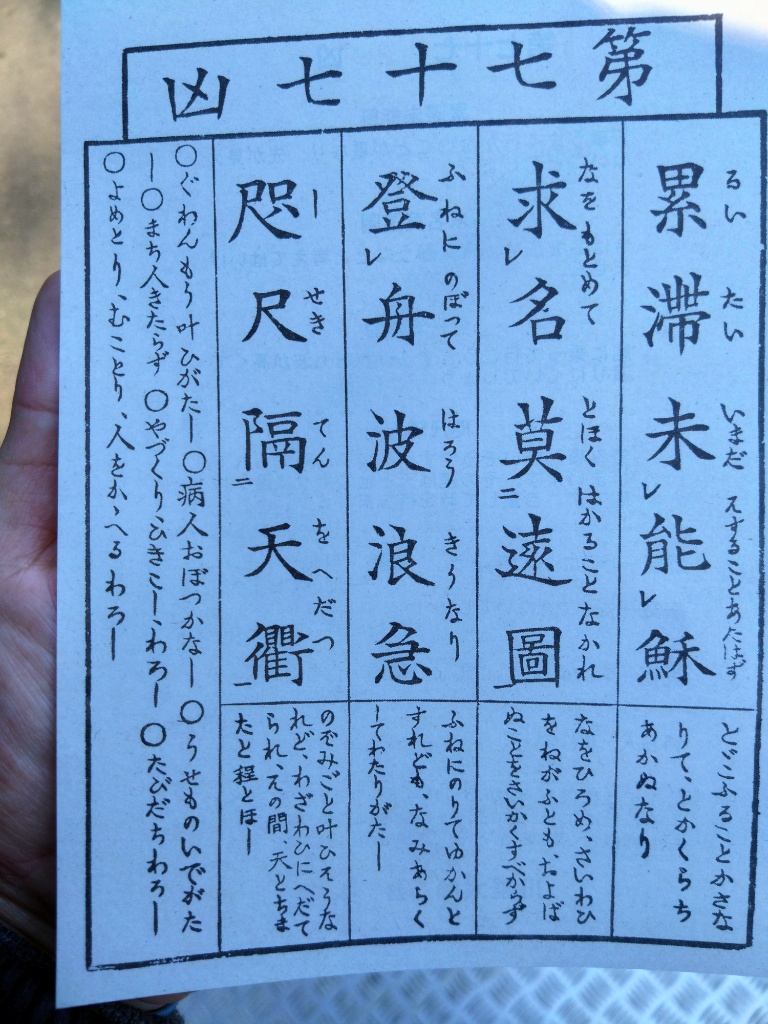 第七十七凶
るい たい いまだ そすることあたはず
累滞未レ能レ穌
とどこふることかさな
りて、とかくらち
あかぬなり
なをもとめて とほくはかることなかれ
求レ名莫二遠圖一
なをひろめ、さいわひ
をねがふとも、ちよば
ぬことをさいかくすべからず
ふねに のぼつて はろう きうなり
登レ舟波浪急
ふねにのりてゆかんと
すれども、なみあらく
してわたりがたし
し せき てん をへだつ
咫尺隔二天衢一
のぞみごと叶ひそうな
れど、わざわひにへだて
られ、その間、天とちま
たと程とほし
〇ぐわんもう叶ひがたし〇病人おぼつかなし〇うせものいでがた
し〇まち人きたらず〇やづくり、ひきこし、わろし〇たびだちわろし
〇よめとり、むことり、人をかゝへるわろし